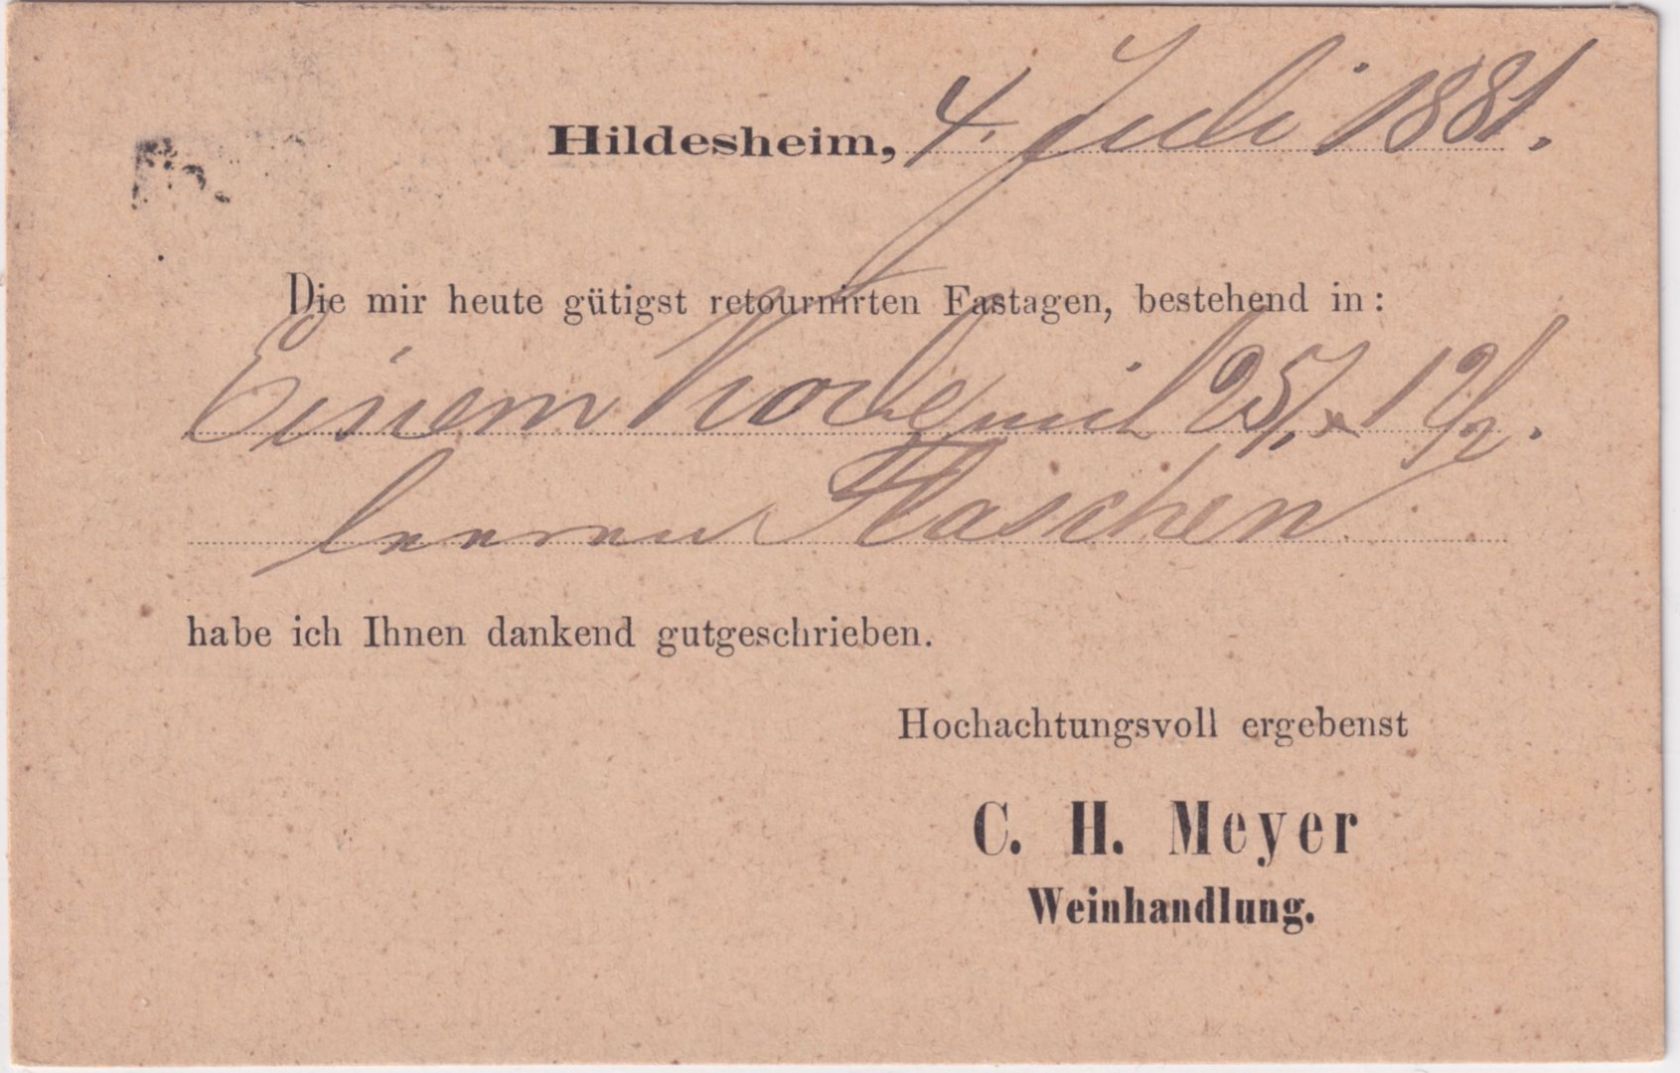 Hildesheim, 4. Juli 1881.
Die mir heute gütigst retournirten Fastagen, bestehend in:
Einem Korbe mit 25/1 & 12/2.
leeren Flaschen
habe ich Ihnen dankend gutgeschrieben.
Hochachtungsvoll ergebenst
C. H. Meyer
Weinhandlung.